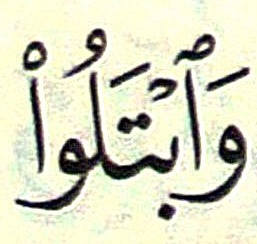 وَٱبْتَلُوا۟